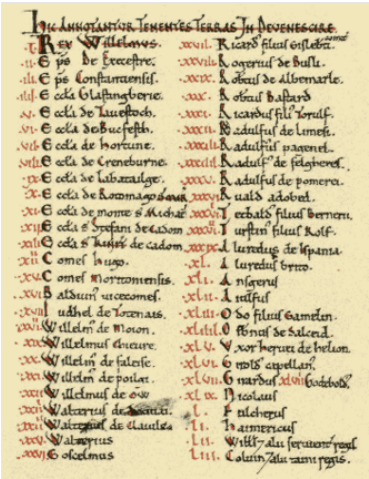 HIC ANNOTANTUR TENENTES TERRAS IN DEVENESCIRE
.I. REX Willelmus.
.II. Eps De Execestre.
.III. Eps Constantiensis.
.IIII. Eccła Glastingberie.
.V. Eccła de Tauestoch.
.VI. Eccła de Bucfesth.
.VII. Eccła de Hortune.
.VIII. Eccła de Creneburne.
.IX. Eccła de Labatailge.
.X. Eccła de Rotomago
.XI. Eccła de monte S Michael
.XII. Eccła S Stefani de Cadom
.XIII. Eccła S de cadom
.XIIII. Comes hugo.
.XV. Comes Moritoniensis.
.XVI. Balduin uicecomes.
.XVII. Iudhel de Totenais.
.XVIII. Willelm de Moion.
.XIX. Willelmus Chieure.
.XX. Willelm de faleise.
.XXI. Willelm de poilgi.
.XXII. Willelmus de ow
.XXIII. Walterius de
.XXIIII. Walterius de Clauile
.XXV. Walterius
.XXVI. Goscelmus.
.XXVII. Ricard filius Gisleb comit
.XXVIII. Rogerius de Busli.
.XXIX. Robtus de albemarle.
.XXX. Robtus Bastard
.XXXI. Ricardus fili Torulf.
.XXXII. Radulfus de limesi.
.XXXIII. Radulfus pagenel.
.XXXIIII. Radulf de felgheres.
.XXXV. Radulfus de pomerei.
.XXXVI. Ruald adobed.
.XXXVII. Tetbald filius Bernerii.
.XXXVIII. Turstin filius Rolf.
.XXXIX. Aluredus de Ispania.
.XL. Aluredus brito.
.XLI. Ansgerus
.XLII. Aiulfus
.XLIII. Odo filius Gamelin.
.XLIIII. Osbnus de Salceid.
.XLV. Vxor heruei de helion
.XLVI. Girold capellan.
.XLVII. Girardus .XLVIII. Godebold.
.XLIX. Nicolaus
.L. Fulcherus
.LI. haimericus
.LII. Willt 7 alii seruient regis
.LIII. Coluin 7 alii taini regis.